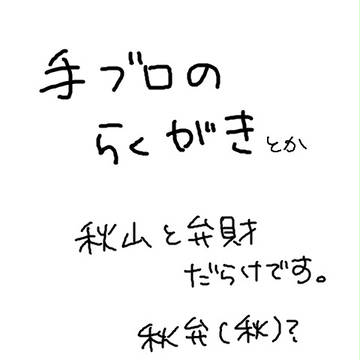 手ブロの
らくがきとか
秋山と弁財
だらけです。
秋弁(秋)?